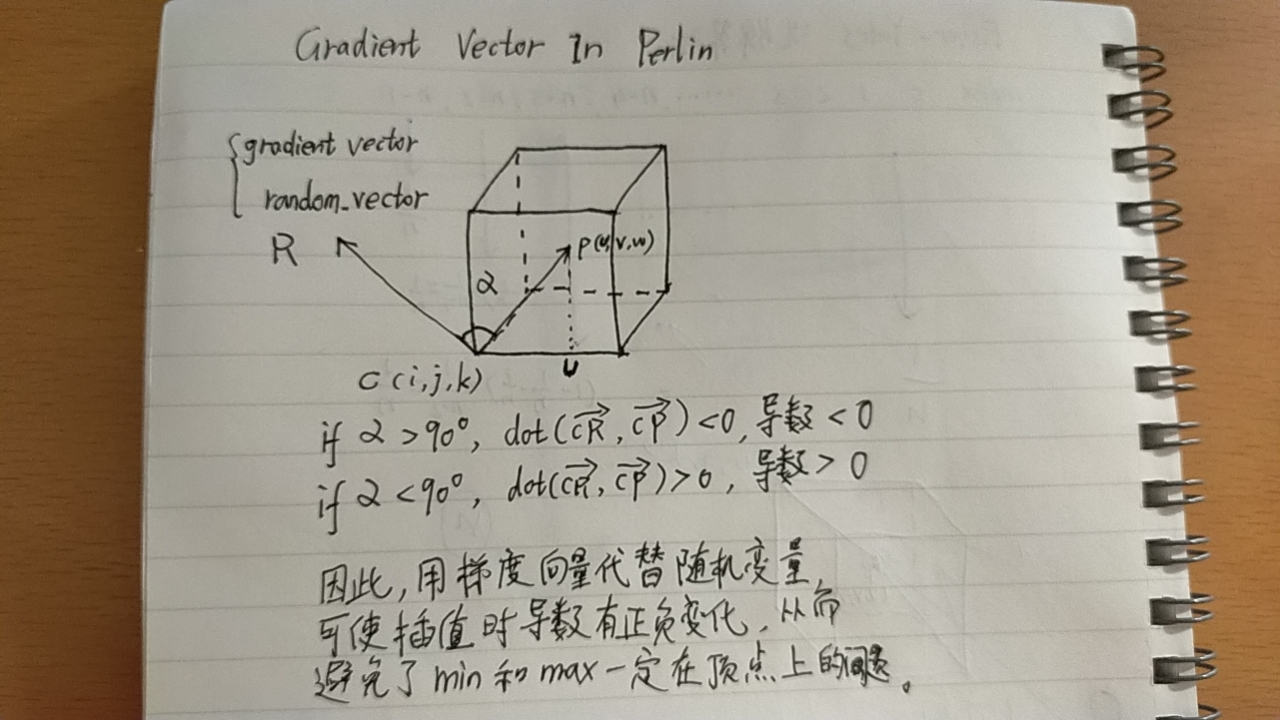 Gradient Vector In Perlin
gradient vector
random_vector
R
P(u,v,w)
α
U
C(i,j,k)
if α>90°, dot(CR,CP)<0,导数<0
if α<90°, dot(CR,CP)>0,导数>0
因此,用梯度向量代替随机变量,
可使插值时导数有正负变化,从而
避免了min和max一定在顶点上的问题。